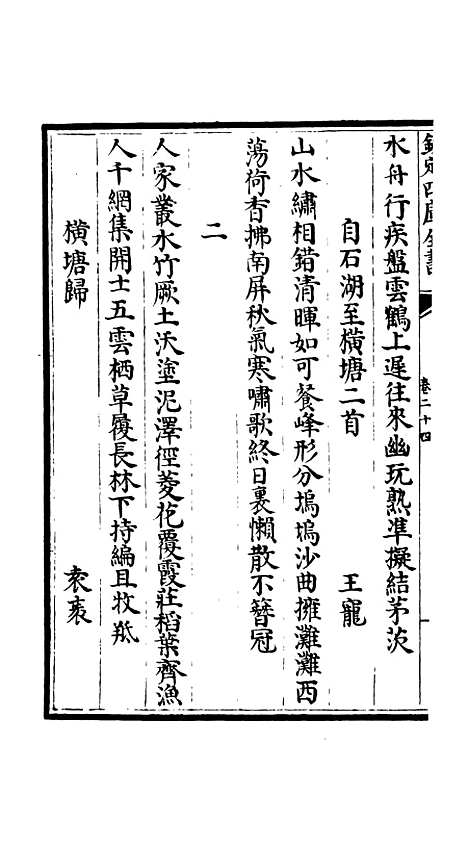 欽定四庫全書
卷二十四
水舟行疾盤雲鶴上遲往來幽玩熟準擬結茅茨
自石湖至橫塘二首 王寵
山水繡相錯清暉如可餐峰形分塢塢沙曲擁灘灘西
蕩荷香拂南屏秋氣寒嘯歌終日裏懶散不簪冠
二
人家叢水竹厥土沃塗泥澤徑菱花覆霞莊稻葉齊漁
人千網集開士五雲栖草履長林下持編且牧羝
橫塘歸 袁袠